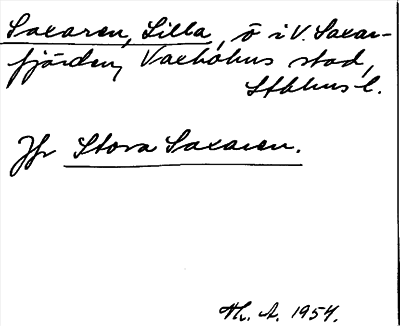 Saxaren, Lilla, ö i V. Saxar-
fjärden, Vaxholms stad,
Sthlms l.
Jfr Stora Saxaren.
Hr. A. 1954.